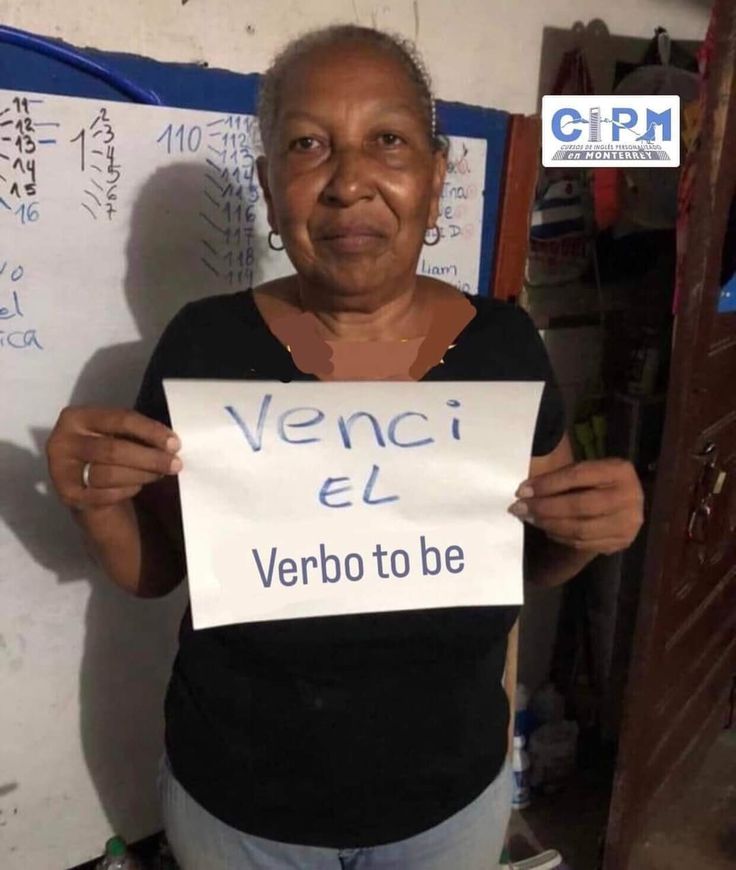 11
12
13
14
15
16
1
2
3
4
5
6
7
110
111
112
113
114
115
116
117
118
119
Liam
CIPM
CURSOS DE INGLÉS PERSONALIZADO
en MONTERREY
Venci
EL
Verbo to be